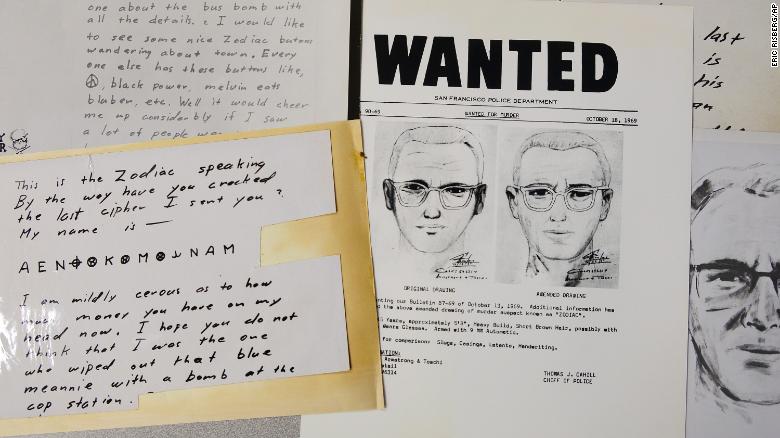 one about the bus bomb with
all the details. I would like
to see some nice Zodiac butons
wandering about town. Every
one else has these buttons like,
black power, melvin eats
bluber, etc. Well it would cheer
me up considerbly if I saw
a lot of people
This is the Zodiac speaking
By the way have you cracked
the last cipher I sent you?
My name is —
A E N ⊕ ⊗ K ⊗ M ⊗ N A M
I am mildly cerous as to how
much money you have on my
head now. I hope you do not
think that I was the one
who wiped out that blue
meannie with a bomb at the
cop station.
WANTED
SAN FRANCISCO POLICE DEPARTMENT
90-69 WANTED FOR MURDER OCTOBER 18, 1969
ORIGINAL DRAWING AMENDED DRAWING
our Bulletin 87-69 of October 13, 1969. Additional information has
the above amended drawing of murder suspect known as "ZODIAC".
approximately 5'8", Heavy Build, Short Brown Hair, possibly with
Glasses. Armed with 9 MM Automatic.
for comparison: Slugs, Casings, Latents, Handwriting.
Armstrong & Toschi
THOMAS J. CAHILL
CHIEF OF POLICE
last
is
his
ERIC RISBERG/AP